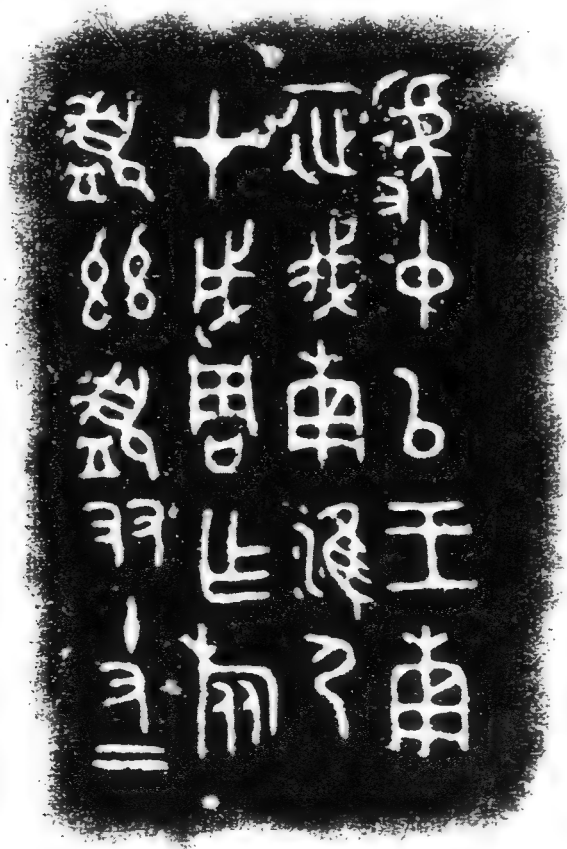 虢中㠯王南
征伐南淮尸
才成周乍旅
盨茲盨友十又二